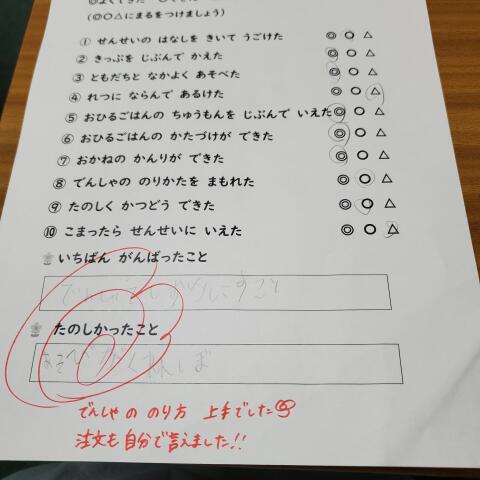 (◎○△にまるをつけましょう)
① せんせいの はなしを きいて うごけた ◎ ○ △
② きっぷを じぶんで かえた ◎ ○ △
③ ともだちと なかよく あそべた ◎ ○ △
④ れつに ならんで あるけた ◎ ○ △
⑤ おひるごはんの ちゅうもんを じぶんで いえた ◎ ○ △
⑥ おひるごはんの かたづけが できた ◎ ○ △
⑦ おかねの かんりが できた ◎ ○ △
⑧ でんしゃの のりかたを まもれた ◎ ○ △
⑨ たのしく かつどう できた ◎ ○ △
⑩ こまったら せんせいに いえた ◎ ○ △
いちばん がんばったこと
でんしゃ
たのしかったこと
でんしゃの のり方 上手でした
注文も自分で言えました!!